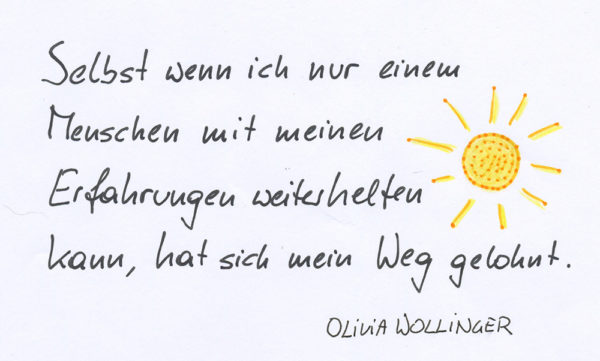 Selbst wenn ich nur einem
Menschen mit meinen
Erfahrungen weiterhelfen
kann, hat sich mein Weg gelohnt.
OLIVIA WOLLINGER